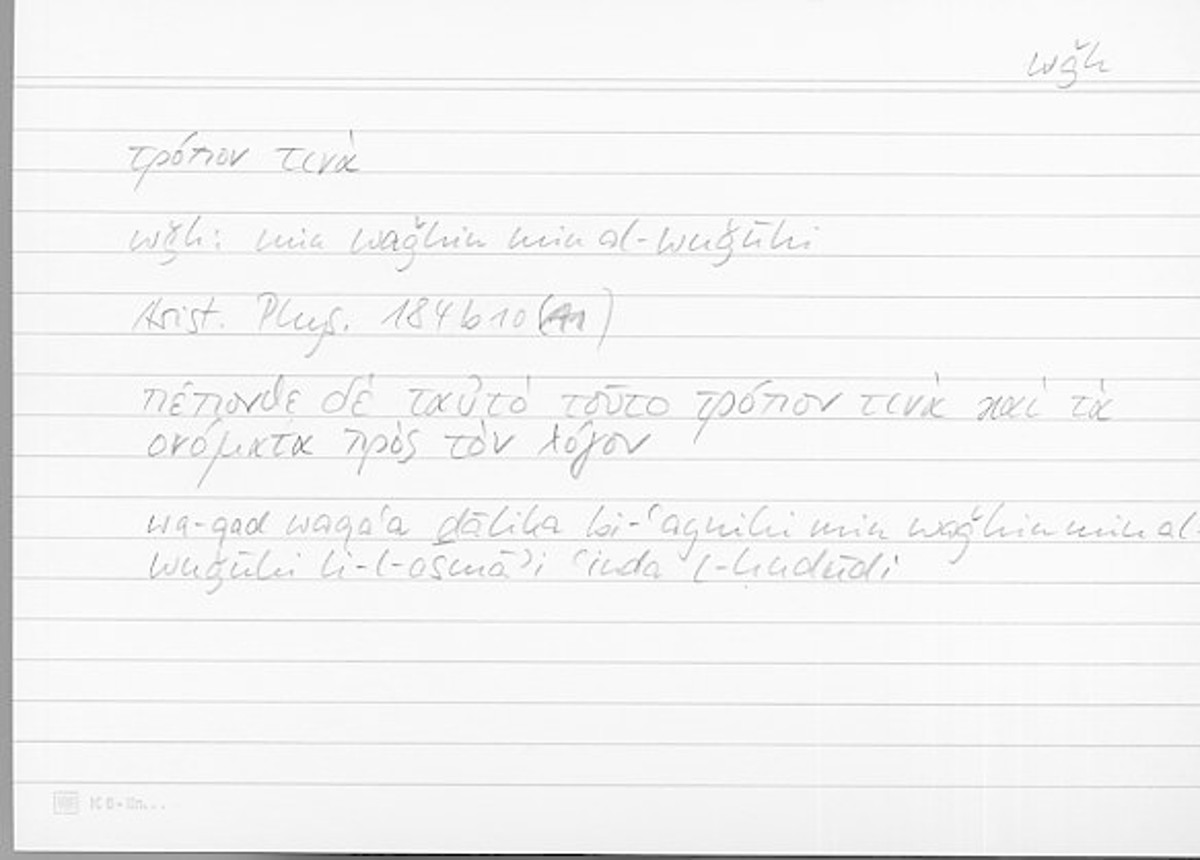 wǧh
τρόπον τινὰ
wǧh: min waǧhin min al-wuǧūhi
Arist. Phys. 184 b 10
πέπονθε δὲ ταὐτὸ τοῦτο τρόπον τινὰ καὶ τὰ
ονόματα πρὸς τὸν λόγον
wa-qad waqaʿa ḏālika bi-ʿaynihi min waǧhin min al-
wuǧūhi li-l-asmāʾi ʿinda l-ḥudūdi